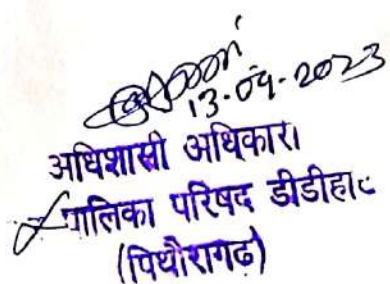 13-09-2023
अधिशासी अधिकारी
पालिका परिषद डीडीहाट
(पिथौरागढ)